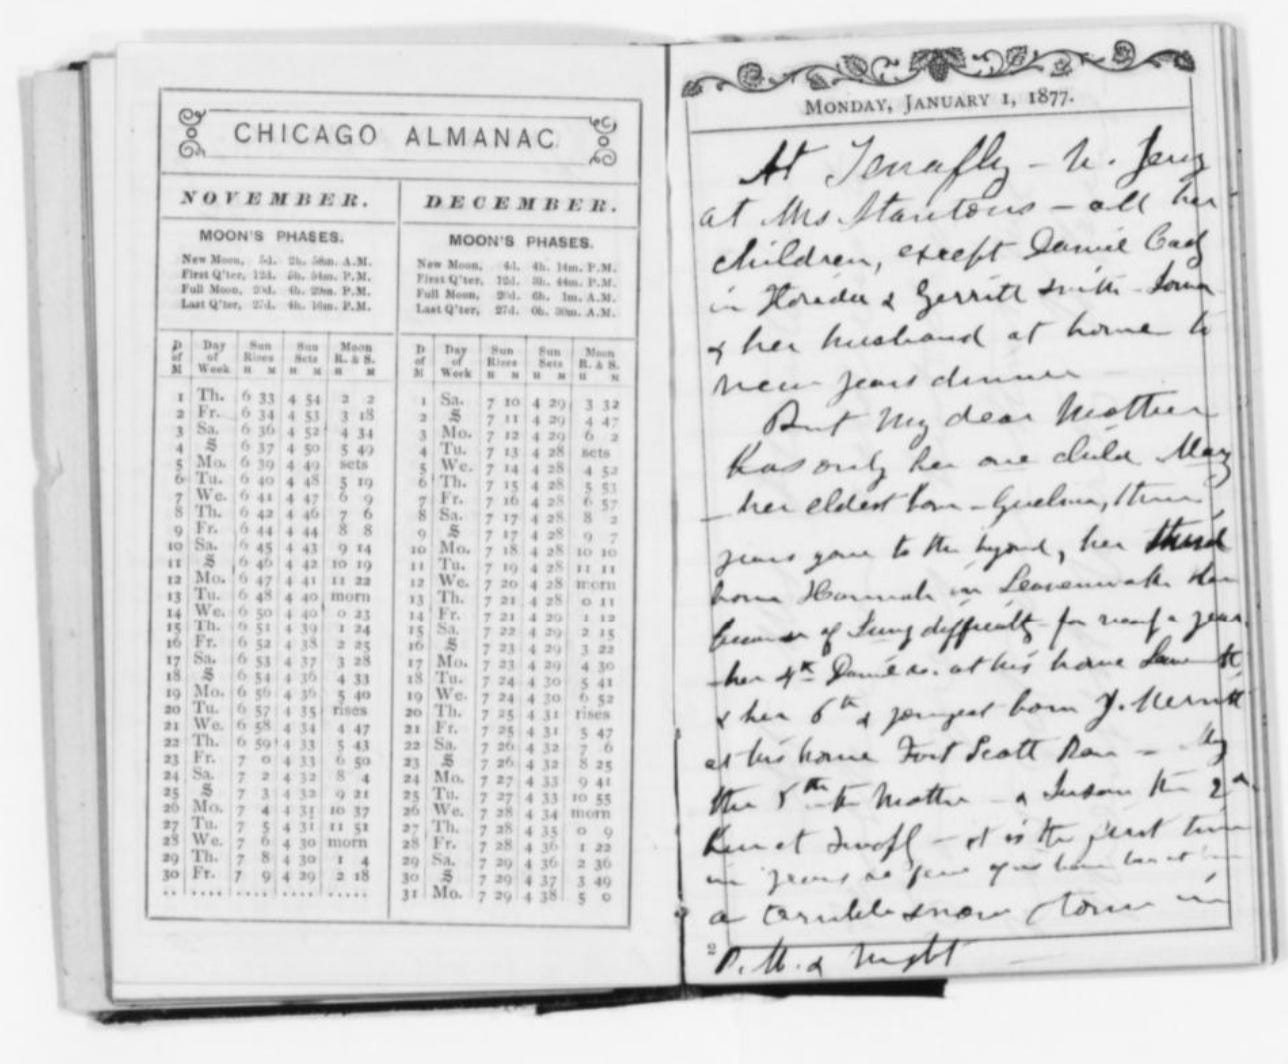 CHICAGO ALMANAC.
NOVEMBER.
MOON'S PHASES.
New Moon, 5d. 2h. 58m. A.M.
First Q'ter, 12d. 5h. 54m. P.M.
Full Moon, 20d. 4h. 29m. P.M.
Last Q'ter, 27d. 4h. 16m. P.M.
D of M Day of Week Sun Rises H M Sun Sets H M Moon R. & S. H M
1 Th. 6 33 4 54 2 2
2 Fr. 6 34 4 53 3 18
3 Sa. 6 36 4 52 4 34
4 S 6 37 4 50 5 49
5 Mo. 6 39 4 49 sets
6 Tu. 6 40 4 48 5 19
7 We. 6 41 4 47 6 9
8 Th. 6 42 4 46 7 6
9 Fr. 6 44 4 44 8 8
10 Sa. 6 45 4 43 9 14
11 S 6 46 4 42 10 19
12 Mo. 6 47 4 41 11 22
13 Tu. 6 48 4 40 morn
14 We. 6 50 4 40 0 23
15 Th. 6 51 4 39 1 24
16 Fr. 6 52 4 38 2 25
17 Sa. 6 53 4 37 3 28
18 S 6 54 4 36 4 33
19 Mo. 6 56 4 36 5 40
20 Tu. 6 57 4 35 rises
21 We. 6 58 4 34 4 47
22 Th. 6 59 4 33 5 43
23 Fr. 7 0 4 33 6 50
24 Sa. 7 2 4 32 8 4
25 S 7 3 4 32 9 21
26 Mo. 7 4 4 31 10 37
27 Tu. 7 5 4 31 11 51
28 We. 7 6 4 30 morn
29 Th. 7 8 4 30 1 4
30 Fr. 7 9 4 29 2 18
DECEMBER.
MOON'S PHASES.
New Moon, 4d. 4h. 14m. P.M.
First Q'ter, 12d. 3h. 44m. P.M.
Full Moon, 20d. 6h. 1m. A.M.
Last Q'ter, 27d. 0h. 30m. A.M.
D of M Day of Week Sun Rises H M Sun Sets H M Moon R. & S. H M
1 Sa. 7 10 4 29 3 32
2 S 7 11 4 29 4 47
3 Mo. 7 12 4 29 6 2
4 Tu. 7 13 4 28 sets
5 We. 7 14 4 28 4 52
6 Th. 7 15 4 28 5 53
7 Fr. 7 16 4 28 6 57
8 Sa. 7 17 4 28 8 2
9 S 7 17 4 28 9 7
10 Mo. 7 18 4 28 10 10
11 Tu. 7 19 4 28 11 11
12 We. 7 20 4 28 morn
13 Th. 7 21 4 28 0 11
14 Fr. 7 21 4 29 1 12
15 Sa. 7 22 4 29 2 15
16 S 7 23 4 29 3 22
17 Mo. 7 23 4 29 4 30
18 Tu. 7 24 4 30 5 41
19 We. 7 24 4 30 6 52
20 Th. 7 25 4 31 rises
21 Fr. 7 25 4 31 5 47
22 Sa. 7 26 4 32 7 6
23 S 7 26 4 32 8 25
24 Mo. 7 27 4 33 9 41
25 Tu. 7 27 4 33 10 55
26 We. 7 28 4 34 morn
27 Th. 7 28 4 35 0 9
28 Fr. 7 28 4 36 1 22
29 Sa. 7 29 4 36 2 36
30 S 7 29 4 37 3 49
31 Mo. 7 29 4 38 5 0
MONDAY, JANUARY 1, 1877.
At Tenafly - N. Jersy
at Mrs Stantons - all her
children, except Daniel Cady
in Florida & Gerritt Smith - Iowa
& her husband at home to
new years dinner
But My dear Mother
has only her one child Mary
- her eldest born - Guelma, three
years gone to the beyond, her third
born Hannah in Leavenworth
because of lung difficulty for nearly a year
- her 4th Daniel R. at his home
& her 6th & youngest born J. Merritt
at his home Fort Scott Kan -
the 5th Mother - & Susan the 2d
here at Tenafly - it is the first time
in years
a terrible snow storm in
P.M. & night
2